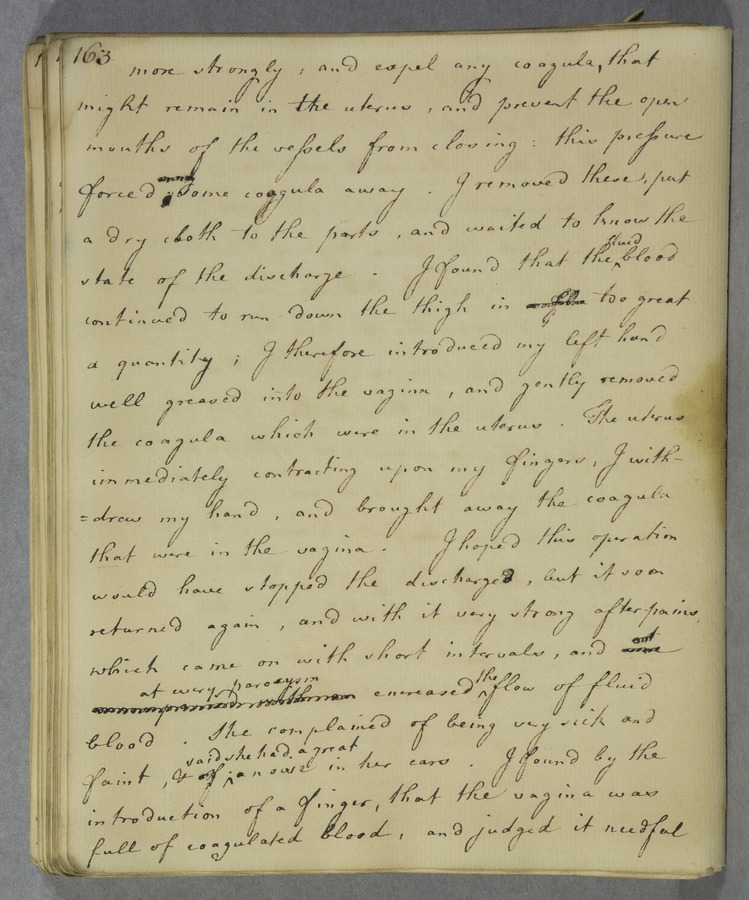 163
more strongly, and expel any coagula, that
might remain in the uterus, and prevent the open
mouths of the vessels from closing: this pressure
forced some coagula away. I removed these, put
a dry cloth to the parts, and waited to know the
state of the discharge. I found that the fluid blood
continued to run down the thigh in too great
a quantity; I therefore introduced my left hand
well greased into the vagina, and gently removed
the coagula which were in the uterus. The uterus
immediately contracting upon my fingers, I with-
=drew my hand, and brought away the coagula
that were in the vagina. I hoped this operation
would have stopped the discharge, but it soon
returned again, and with it very strong afterpains,
which came on with short intervals, and
at every paroxysm encreased the flow of fluid
blood. She complained of being very sick and
faint, & said she had a great noise in her ears. I found by the
introduction of a finger, that the vagina was
full of coagulated blood, and judged it needful